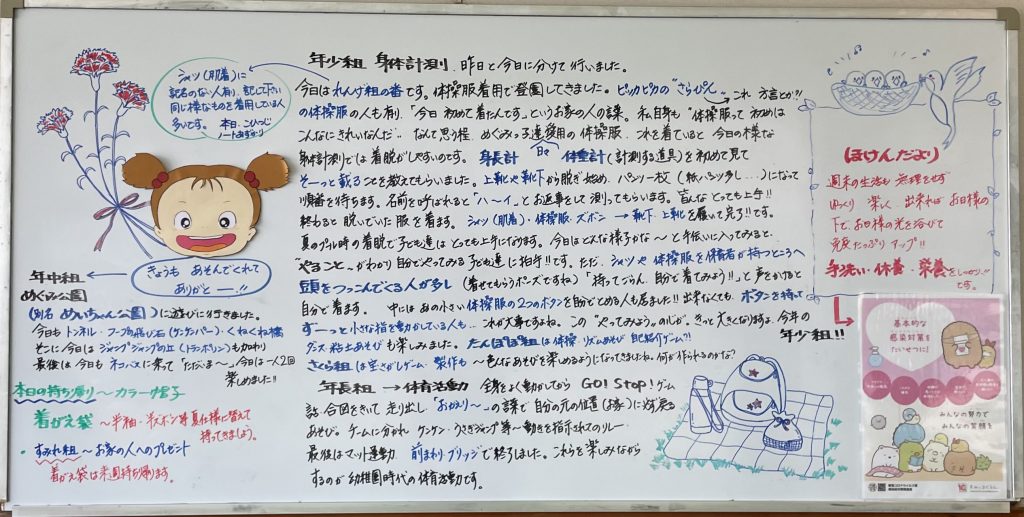 シャツ(肌着)に
記名のない人有り、記して下さい
同じ様なものを着用している人
多いです。
年少組 身体計測、昨日と今日に分けて行いました。
今日はれんげ組の番です。体操服着用で登園してきました。ピッカピカの"さらぴん"
これ方言とか!!
の体操服の人も有り、「今日初めて着たんです」というお家の人の談。私自身も"体操服って初めは
こんなにきれいなんだ"なんて思う程 めぐみっ子達愛用の体操服、これを着ていると今日の様な
身体計測では着脱がしやすいのです。身長計 体重計(計測する道具)を初めて見て
そーっと載ることを教えてもらいました。上靴や靴下から脱ぎ始め、パンツ一枚(紙パンツ多し…)になって
順番を待ちます。名前を呼ばれると「ハーイ」とお返事をして測ってもらいます。皆んなとっても上手!!
終わると脱いでいた服を着ます。シャツ(肌着)・体操服・ズボン→靴下・上靴を履いて完了!!です。
夏のプール時の着脱で子ども達はとっても上手になります。今日はどんな様子かな〜と手伝いに入ってみると、
"やること"がわかり自分でやってみる子ども達に拍手!!です。ただ、シャツや体操服を保育者が持つところへ
頭をつっこんでくる人が多し(着せてもらうポーズですね)「持ってごらん、自分で着てみよう!!」と声をかけると
自分で着ます。 中にはあの小さい体操服の2つのボタンを自分でとめる人も居ました!!出来なくても、ボタンを持って
ずーっと小さな指を動かしている人も…これが大事ですよね。この"やってみよう"の心が、きっと大きくなりますよ、今年の
年少組!!
ダンス・粘土あそびも楽しみました。たんぽぽ組は体操・リズムあそび
さくら組は空きがしゲーム・製作も〜色んなあそびを楽しめるようになってきましたね。何が作られるのかな?
年長組→体育活動 全身をよく動かしてから GO!Stop!ゲーム
話、合図をきいて走り出し、「おかえり〜」の談で自分の元の位置(お家)に必ず戻る
あそび。ゲームに分かれ ケンケン・うさぎジャンプ等〜動きを指示されてのリレー
最後はマット運動、前まわり・ブリッジで終了しました。これらを楽しみながら
するのが幼稚園時代の体育活動です。
きょうも あそんでくれて
ありがとーー!!
年中組
めぐみ公園
(別名めいちゃん公園)に遊びに行きました。
今日もトンネル・フープの飛び石(ケンケンパー)・くねくね橋
そこに今日はジャンプジャンプの丘(トランポリン)も加わり
最後は今日もネコバスに乗って「ただいま〜」、今日は一人2回
楽しめました!!
本日の持ち帰り〜カラー帽子
着がえ袋〜半袖・半ズボン等夏仕様に替えて
持ってきましょう。
・すみれ組〜お家の人へのプレゼント
着がえ袋は来週持ち帰ります。
ほけんだより
週末の生活も無理をせず
ゆっくり 楽しく、出来ればお日様の
下で、お日様の光を浴びて
免疫たっぷりアップ!!
手洗い・休養・栄養をしっかり!!
です。
基本的な
感染対策を
たいせつに!
みんなの努力で
みんなの笑顔を